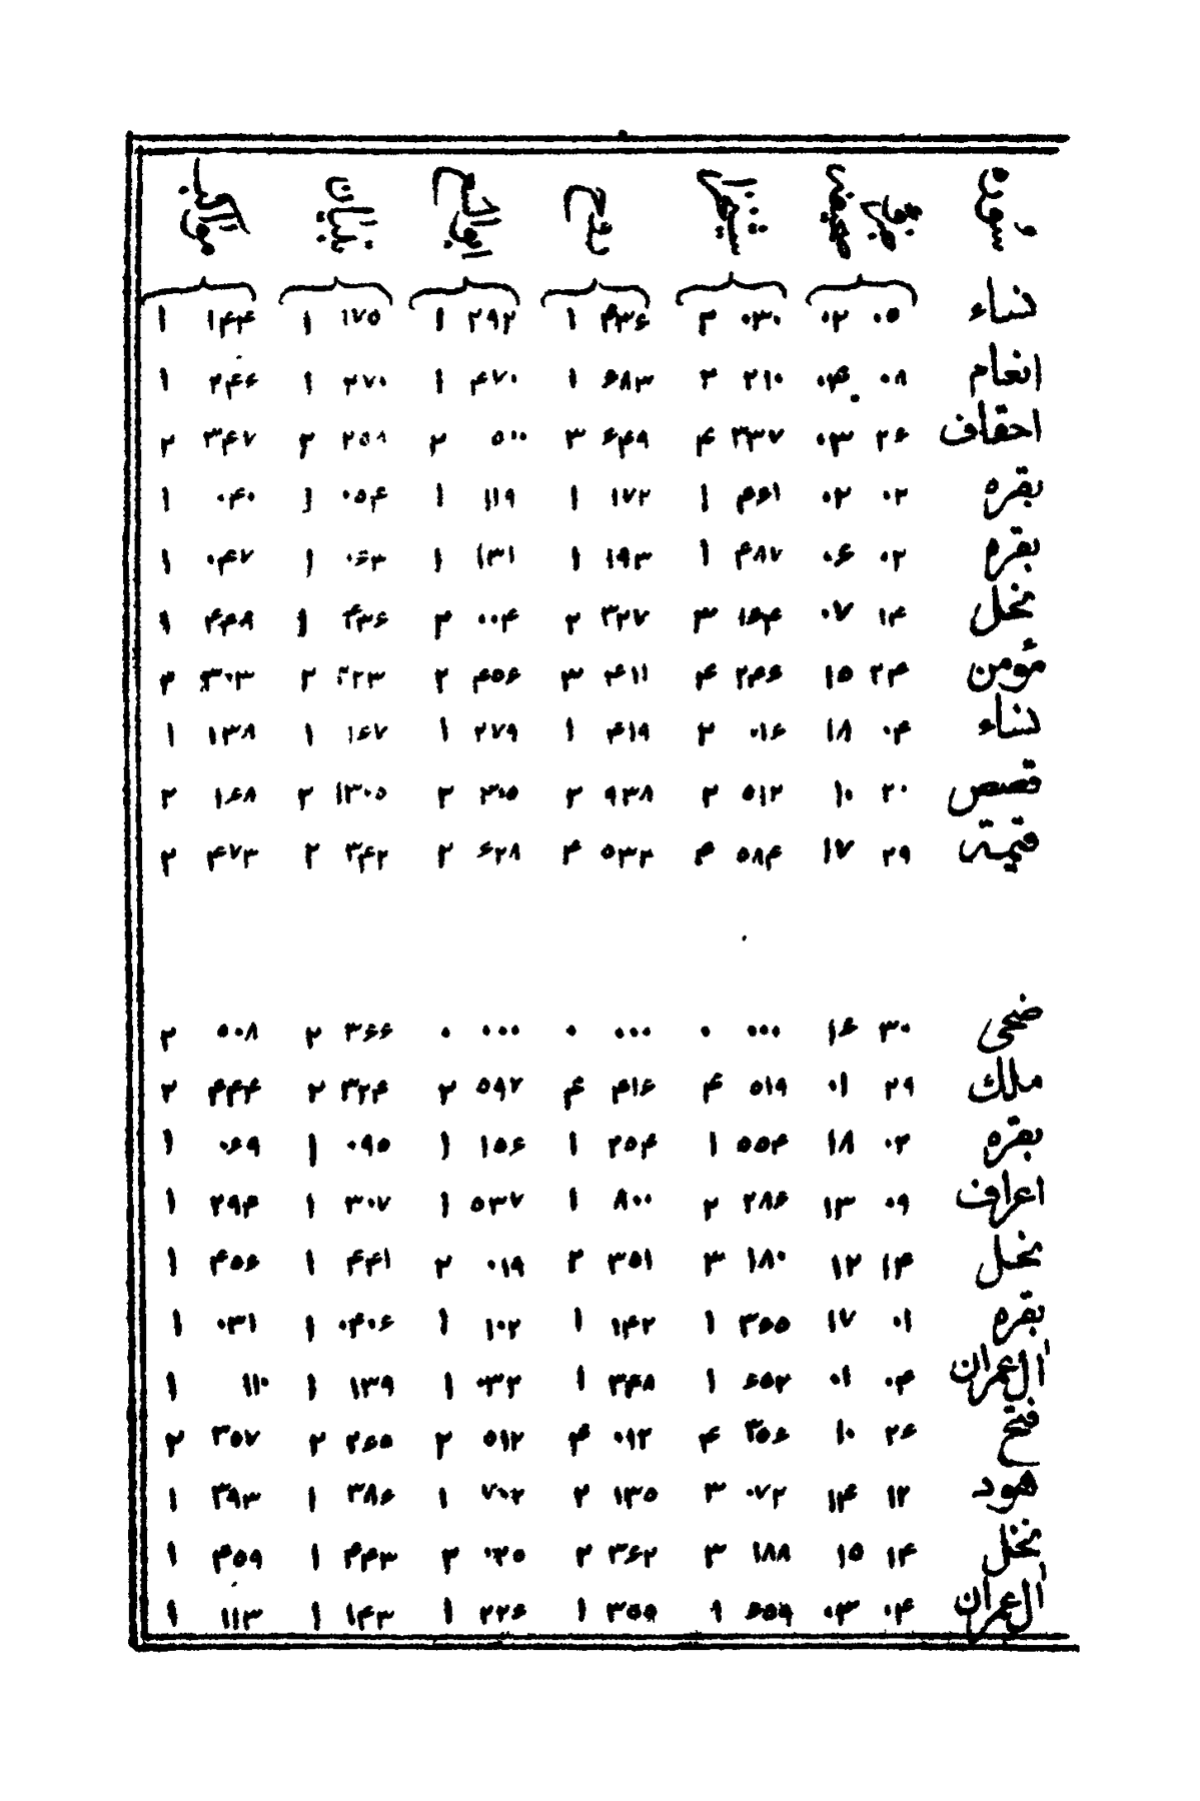 سوره جزء صفحه شیرازی فتح ابوالفتوح تبیان مواهب
نساء ۰۵ ۰۲ ۰۳۰ ۲ ۴۳۶ ۱ ۲۹۲ ۱ ۱۷۵ ۱ ۱۴۴ ۱
انعام ۰۸ ۰۴ ۲۱۰ ۲ ۶۸۳ ۱ ۴۷۰ ۱ ۲۷۰ ۱ ۲۴۶ ۱
احقاف ۲۶ ۰۳ ۳۳۷ ۴ ۶۴۹ ۳ ۵۰۰ ۲ ۲۵۸ ۲ ۳۴۷ ۲
بقره ۰۲ ۰۲ ۴۶۱ ۱ ۱۷۲ ۱ ۱۱۹ ۱ ۰۵۴ ۱ ۰۴۰ ۱
بقره ۰۲ ۰۶ ۴۸۷ ۱ ۱۹۳ ۱ ۱۳۱ ۱ ۰۶۳ ۱ ۰۴۷ ۱
نحل ۱۴ ۰۷ ۱۶۴ ۳ ۳۲۷ ۲ ۰۰۴ ۲ ۴۳۶ ۱ ۴۴۹ ۱
مؤمن ۲۴ ۱۵ ۲۴۶ ۴ ۴۱۱ ۳ ۴۵۶ ۲ ۲۲۳ ۲ ۳۰۳ ۲
نساء ۰۴ ۱۸ ۰۱۶ ۲ ۴۱۹ ۱ ۲۷۹ ۱ ۱۶۷ ۱ ۱۳۸ ۱
قصص ۲۰ ۱۰ ۵۱۲ ۳ ۹۳۸ ۲ ۳۰۵ ۲ ۱۳۰۵ ۲ ۱۶۸ ۲
قیمة ۲۹ ۱۷ ۵۸۴ ۴ ۵۳۳ ۴ ۶۲۸ ۲ ۳۴۲ ۲ ۴۷۳ ۲
ضحی ۳۰ ۱۶ ۰۰۰ ۰ ۰۰۰ ۰ ۰۰۰ ۰ ۳۶۶ ۲ ۵۰۸ ۲
ملك ۲۹ ۰۱ ۵۱۹ ۴ ۴۱۶ ۴ ۵۹۷ ۲ ۳۲۴ ۲ ۴۴۴ ۲
بقره ۰۲ ۱۸ ۵۵۴ ۱ ۲۵۴ ۱ ۱۵۶ ۱ ۰۹۵ ۱ ۰۶۹ ۱
اعراف ۰۹ ۱۳ ۲۸۶ ۲ ۸۰۰ ۱ ۵۳۷ ۱ ۳۰۷ ۱ ۲۹۴ ۱
نحل ۱۴ ۱۲ ۱۸۰ ۳ ۳۵۱ ۲ ۰۱۹ ۲ ۴۴۱ ۱ ۴۵۶ ۱
بقره ۰۱ ۱۷ ۳۶۵ ۱ ۱۴۲ ۱ ۱۰۲ ۱ ۰۴۰۶ ۱ ۰۳۱ ۱
آل عمران ۰۴ ۰۱ ۶۵۲ ۱ ۳۴۸ ۱ ۰۳۲ ۱ ۱۳۹ ۱ ۱۱۰ ۱
فتح ۲۶ ۱۰ ۳۵۶ ۴ ۰۱۲ ۴ ۵۱۲ ۲ ۲۶۵ ۲ ۳۵۷ ۲
هود ۱۲ ۱۴ ۰۷۲ ۳ ۱۳۵ ۲ ۷۰۲ ۱ ۳۸۶ ۱ ۳۹۳ ۱
نحل ۱۴ ۱۵ ۱۸۸ ۳ ۳۶۲ ۲ ۰۲۵ ۲ ۴۴۳ ۱ ۴۵۹ ۱
آل عمران ۰۴ ۰۳ ۶۵۹ ۱ ۳۵۹ ۱ ۲۲۶ ۱ ۱۴۳ ۱ ۱۱۳ ۱